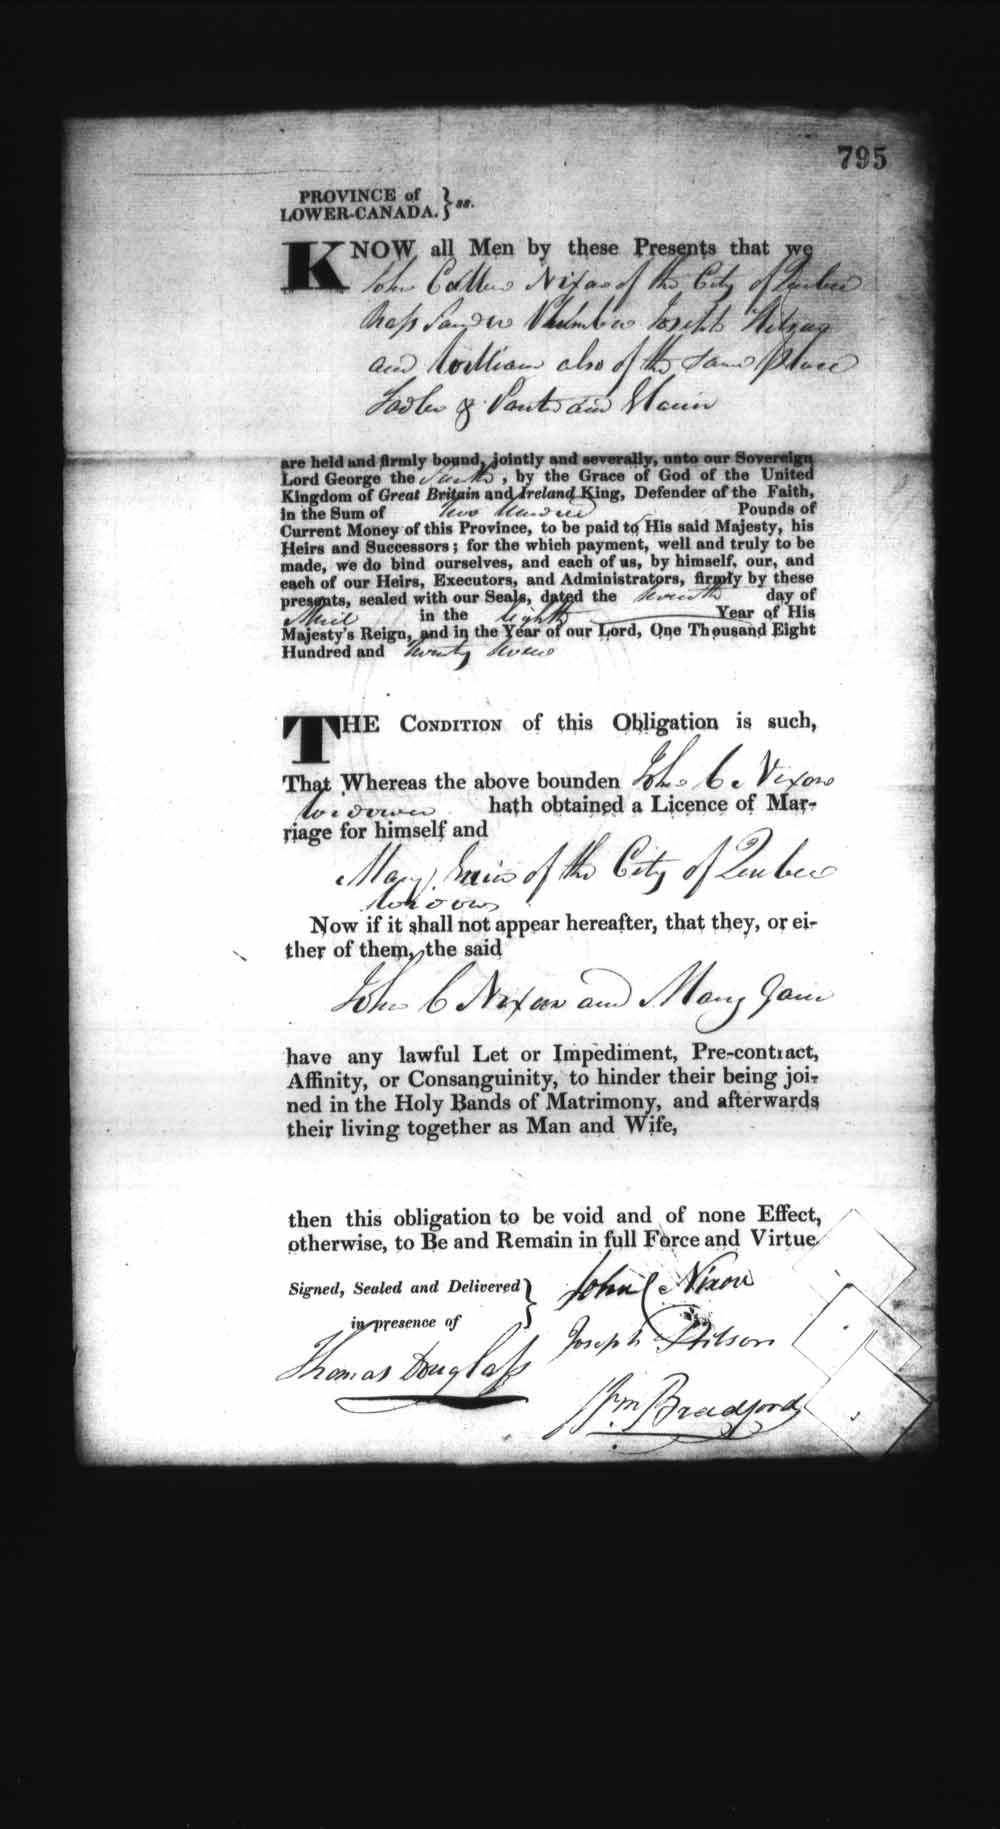 795
PROVINCE of
LOWER-CANADA. } ss.
KNOW all Men by these Presents that we
John Nixon of the City of Quebec
Joseph
and William also of the same place
&
are held and firmly bound, jointly and severally, unto our Sovereign
Lord George the Fourth, by the Grace of God of the United
Kingdom of Great Britain and Ireland King, Defender of the Faith,
in the Sum of Two Hundred Pounds of
Current Money of this Province, to be paid to His said Majesty, his
Heirs and Successors; for the which payment, well and truly to be
made, we do bind ourselves, and each of us, by himself, our, and
each of our Heirs, Executors, and Administrators, firmly by these
presents, sealed with our Seals, dated the seventh day of
April in the eighth Year of His
Majesty's Reign, and in the Year of our Lord, One Thousand Eight
Hundred and twenty seven
THE CONDITION of this Obligation is such,
That Whereas the above bounden John C Nixon
widower hath obtained a Licence of Mar-
riage for himself and
Mary of the City of Quebec
widow
Now if it shall not appear hereafter, that they, or ei-
ther of them, the said
John C Nixon and Mary
have any lawful Let or Impediment, Pre-contract,
Affinity, or Consanguinity, to hinder their being joi-
ned in the Holy Bands of Matrimony, and afterwards
their living together as Man and Wife,
then this obligation to be void and of none Effect,
otherwise, to Be and Remain in full Force and Virtue.
Signed, Sealed and Delivered }
in presence of
John C Nixon
Joseph
Thomas Douglass
Wm Bradford